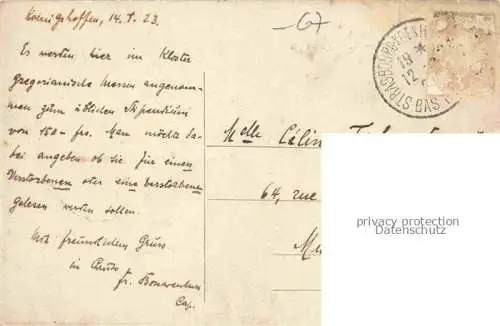 Koenigshoffen, 14.1.23.
Es werden hier im Kloster
Gregorianische Messen angenom-
men zum üblichen Stipendium
von 150 frs. Man möchte da-
bei angeben ob sie für einen
Verstorbenen oder eine Verstorbene
gelesen werden sollen.
Mit freundlichem Gruss
in Xsto
fr. Bonaventura
Cap.
—67
STRASBOURG
BAS
18
12
Melle Célin
64, rue
privacy protection
www.oldthing.de